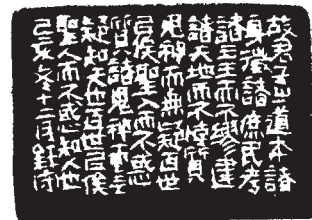 故君子之道本諸
身徵諸庶民考
諸三王而不繆建
諸天地而不悖質
鬼神而無疑百世
以俟聖人而不惑
質諸鬼神而無
疑知天也百世以俟
聖人而不惑知人也
己亥冬十二月